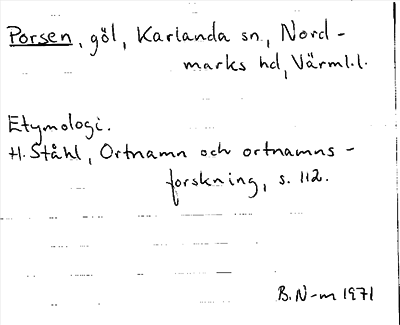 Porsen, göl, Karlanda sn., Nord-
marks hd, Värml.l.
Etymologi.
H. Ståhl, Ortnamn och ortnamns-
forskning, s. 112.
B. N-m 1971